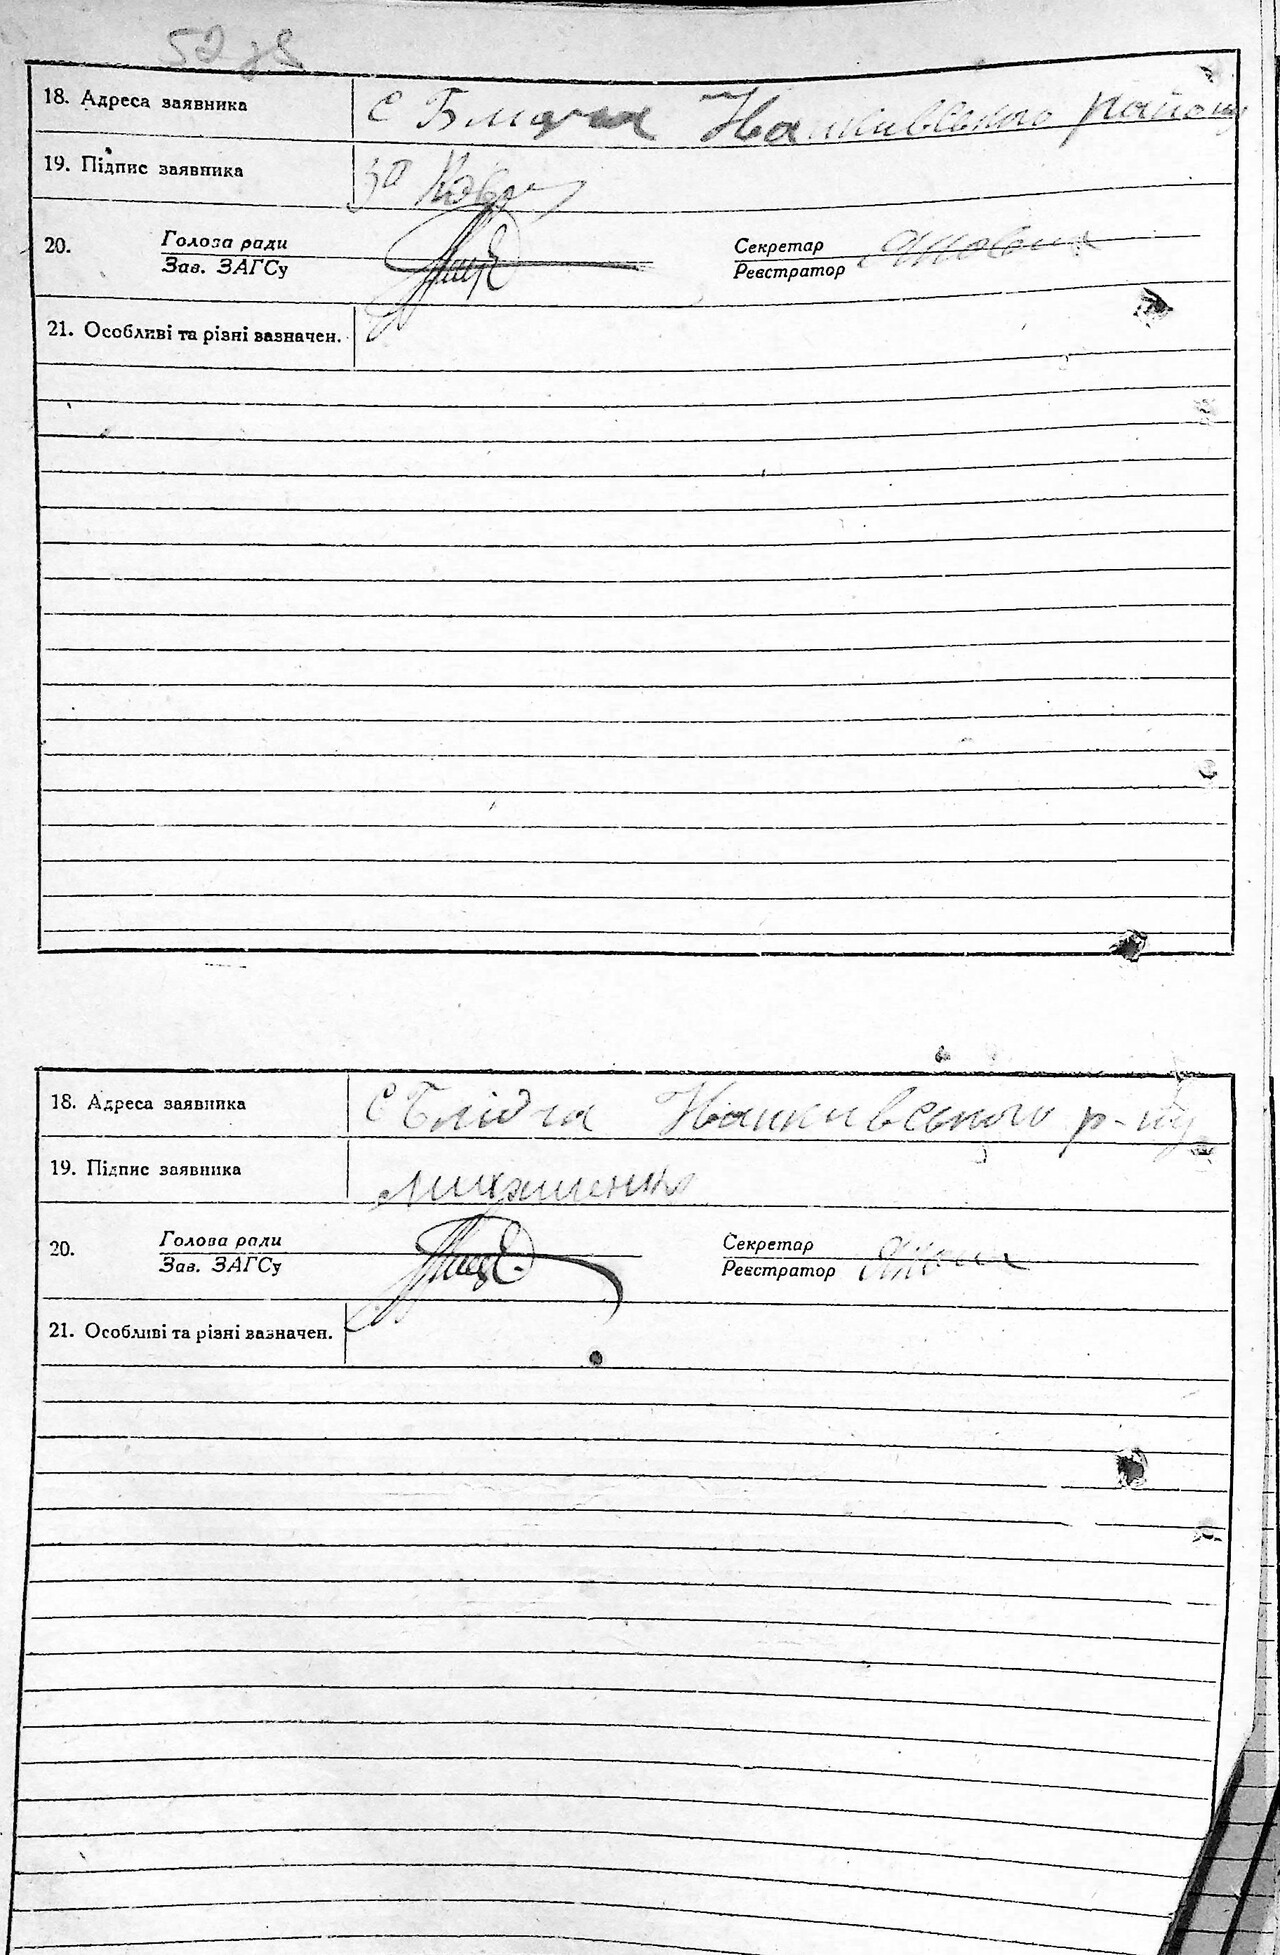 52 зв
18. Адреса заявника с Блидча Іванківського району
19. Підпис заявника за
20. Голова ради
Зав. ЗАГСу
Секретар
Реєстратор
21. Особливі та різні зазначен.
18. Адреса заявника с Блідча Іванківського р-ну
19. Підпис заявника
20. Голова ради
Зав. ЗАГСу
Секретар
Реєстратор
21. Особливі та різні зазначен.